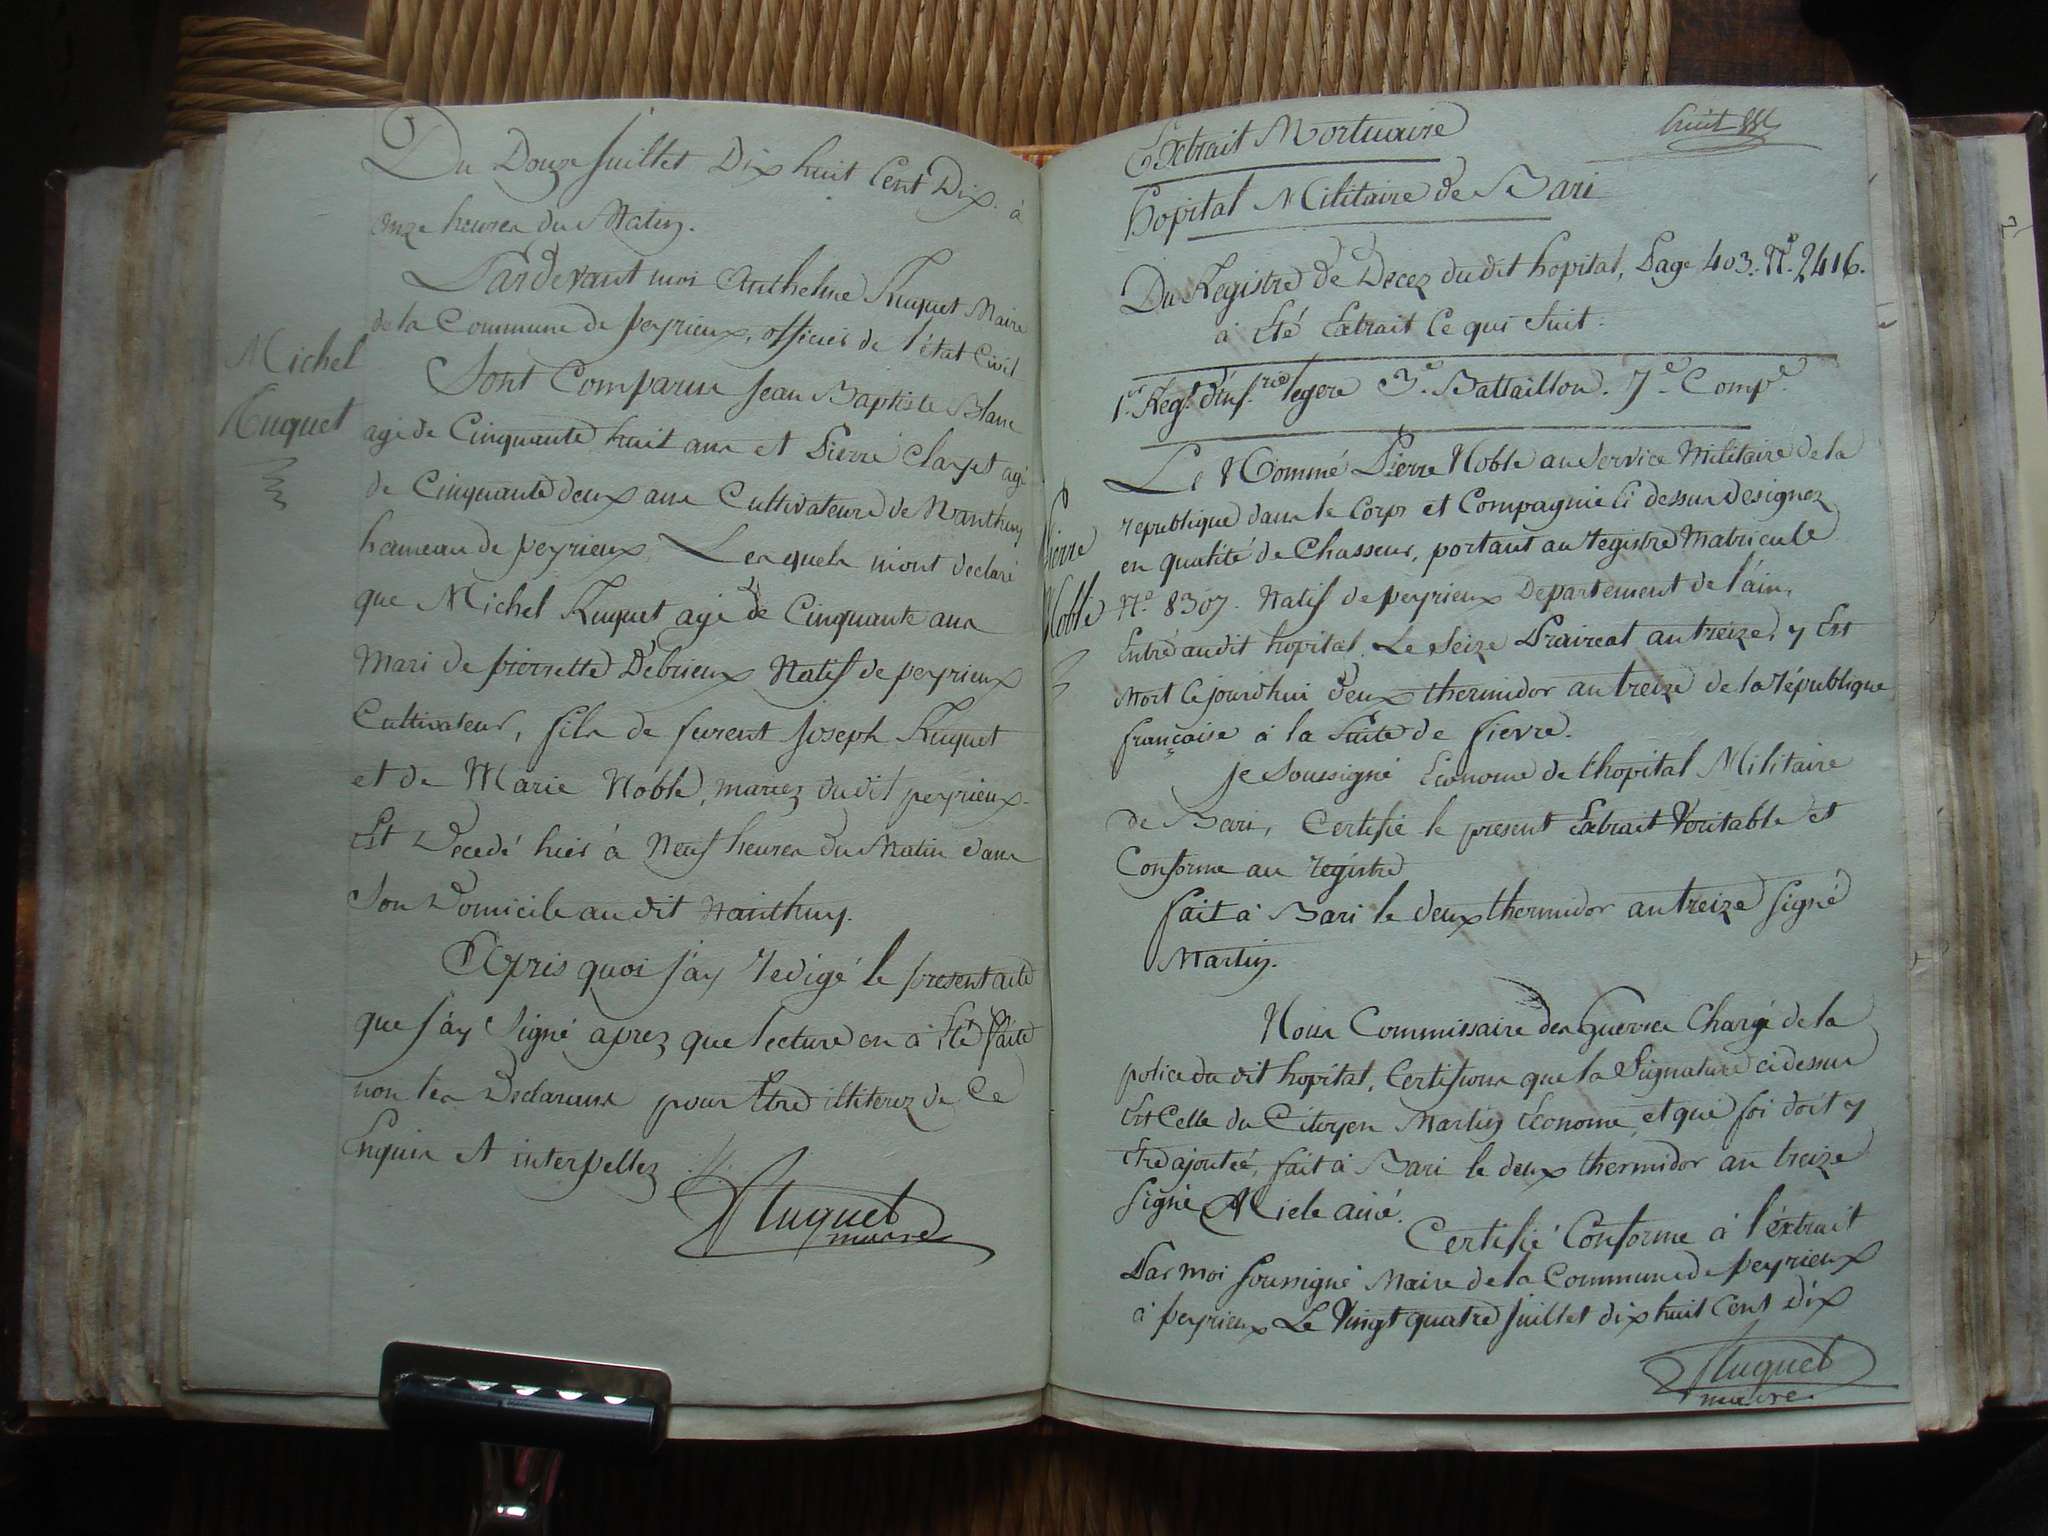 Michel
Huguet
Du Douze Juillet Dix huit Cent Dix. à
onze heures du Matin.
Pardevant moi Anthelme Huguet Maire
de la Commune de peyrieux, officier de l'état Civil
Sont Comparus Jean Baptiste Blanc
agé de Cinquante huit ans et Pierre Clayet agé
de Cinquante deux ans Cultivateurs de Nanthuy
hameau de peyrieux, Lesquels m'ont declaré
que Michel Huguet agé de Cinquante ans
Mari de pierrette Debrieux Natif de peyrieux
Cultivateur, fils de furent Joseph Huguet
et de Marie Noble, mariez du dit peyrieux.
Est Decedé hier à Neuf heures du Matin dans
Son Domicile au dit Nanthuy.
Apris quoi j'ay redigé le present acte
que j'ay Signé aprez que lecture en à Eté faite
non les Declarans pour Etre illiterez de Ce
Enquis et interpellez
Huguet
maire
Extrait Mortuaire
huit
Hopital Militaire de Bari
Du Registre de Decez du dit hopital, Page 403. N.º 2416.
à Eté Extrait Ce qui Suit.
1.er Reg.t d'inf.rie legere 3.e Battaillon. 7.e Comp.e
Pierre
Noble
Le Nommé Pierre Noble au Service Militaire de la
republique dans le Corps et Compagnie Ci dessus designez
en qualité de Chasseur, portant au registre Matricule
N.º 8307. Natif de peyrieux Departement de l'ain,
Entré au dit hopital. Le Seize Praireal an treize, y Est
Mort Ce jourd'hui deux thermidor an treize de la république
française à la Suite de fievre.
Je Soussigné Econome de l'hopital Militaire
de Bari, Certifie le present Extrait Veritable et
Conforme au registre
fait à Bari le deux thermidor an treize Signé
Martin.
Nous Commissaire des Guerres Chargé de la
police du dit hopital, Certifions que la Signature ci dessus
Est Celle du Citoyen Martin Econome, et que foi doit y
Etre ajoutée, fait à Bari le deux thermidor an treize
Signé ainé.
Certifié Conforme à l'éxtrait
Par moi soussigné Maire de la Commune de peyrieux
à peyrieux Le Vingt quatre Juillet dix huit Cent dix
Huguet
maire